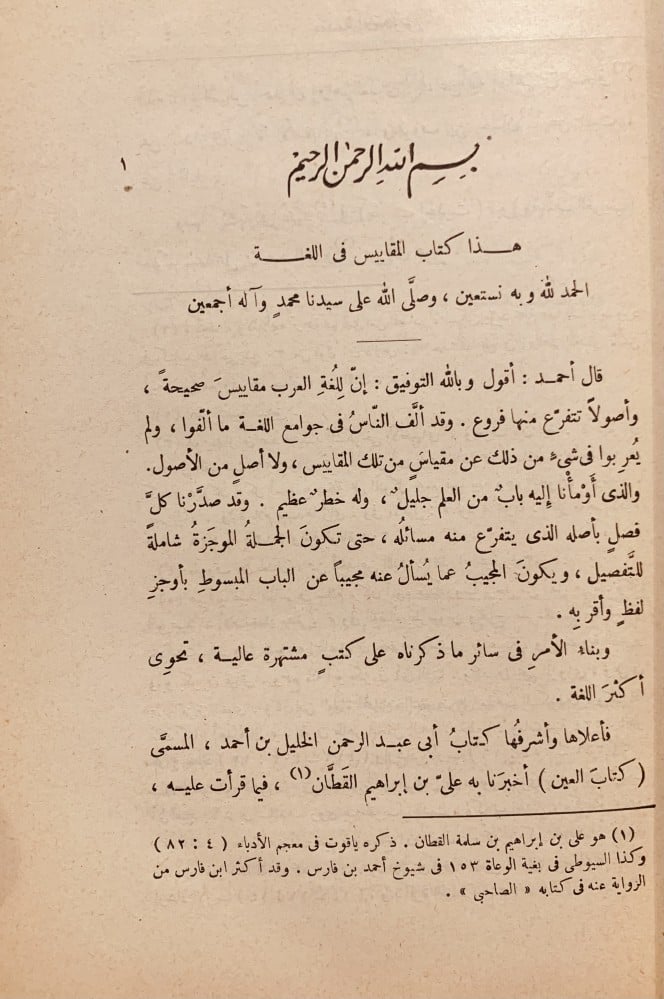 ١
بِسمِ اللهِ الرحمٰنِ الرحيمْ
هـذا كتاب المقاييس فى اللغـــة
الحمد لله وبه نستعين ، وصلَّى الله على سيدنا محمدٍ وآله أجمعين
قال أحمـد : أقول وبالله التوفيق : إنّ لِلُغةِ العرب مقاييسَ صحيحةً ،
وأصولاً تتفرّع منها فروع . وقد ألَّف النّاسُ فى جوامع اللغة ما ألّفوا ، ولم
يُعرِبوا فى شىءٍ من ذلك عن مقياسٍ من تلك المقاييس ، ولا أصلٍ من الأصول.
والذى أَوْمأْنا إليه بابٌ من العلم جليلٌ ، وله خطرٌ عظيم . وقد صدَّرْنا كلَّ
فصلٍ بأصله الذى يتفرّع منه مسائلُه ، حتى تكونَ الجمـلةُ الموجَزةُ شاملةً
للتَّفصيل ، ويكونَ المجيبُ عما يُسألُ عنه مجيباً عن الباب المبسوطِ بأوجزِ
لفظٍ وأقربِه .
وبناءُ الأمرِ فى سائر ما ذكرناه على كتبٍ مشتهرة عاليـة ، تحوِى
أكثرَ اللغة .
فأعلاها وأشرفُها كتابُ أبى عبـد الرحمن الخليل بن أحمد ، المسمَّى
(كتابَ العين) أخبرَنا به علىّ بن إبراهيم القَطَّان(١) ، فيما قرأت عليـه ،
(١) هو على بن إبراهيم بن سلمة القطان . ذكره ياقوت فى معجم الأدباء (٤ : ٨٢)
وكذا السيوطى فى بغية الوعاة ١٥٣ فى شيوخ أحمد بن فارس . وقد أكثر ابن فارس من
الرواية عنه فى كتابه « الصاحبى » .